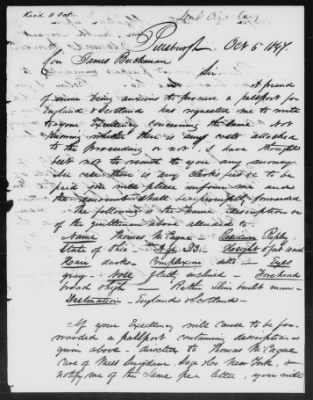 Recd 11 Oct
Pittsburgh, Oct 5 1847.
Hon James Buchanan
Sir
A friend
of mine being anxious to procure a passport for
England & Scotland has requested me to write
to your Excellency concerning the same - not
knowing whether there is any costs attached
to the proceeding or not, I have thought
best not to remit to you any money
in case there is any clerks fees to be
paid you will please inform me and
the amount shall be promptly forwarded.
The following is the name & description of
of the gentleman above alluded to -
Name Thomas McCague - Residence Ripley,
State of Ohio - Age 53 - Height 5 feet
Hair dark - Complexion ditto - Eyes
gray - Nose - Forehead
broad & high - Rather thin built man -
Destination - England & Scotland -
If your Excellency will cause to be for-
warded a passport containing description as
given above - directed to Thomas McCague
care of Mess Suydam, Sage & Co New York, &
notify me of the same per letter, you will